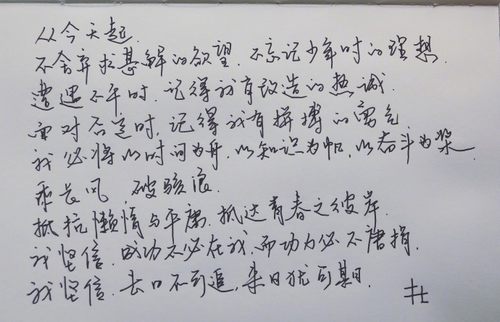 从今天起.
不舍弃求甚解的欲望. 不忘记少年时的理想.
遭遇不平时. 记得我有改造的热诚.
面对不差时. 记得我有拼搏的勇气
我必将以时间为舟. 以知识为帆. 以奋斗为桨.
乘长风 破骇浪.
抵抗懒惰与平庸. 抵达青春之彼岸.
我坚信. 成功不必在我. 而功力必不唐捐.
我坚信. 去日不可追, 来日犹可期.